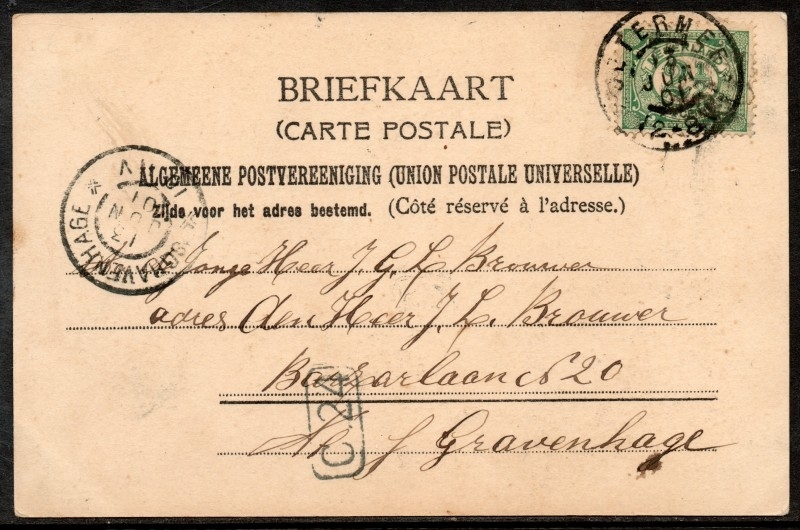 BRIEFKAART
(CARTE POSTALE)
ALGEMEENE POSTVEREENIGING (UNION POSTALE UNIVERSELLE)
Zijde voor het adres bestemd. (Côté réservé à l'adresse.)
Jonge Heer J. G. L. Brouwer
adres Den Heer J. L. Brouwer
Bazarlaan No 20
Te s' Gravenhage
C. 24
'S GRAVENHAGE
13 JUN 01
ZOETERMEER
12-8V